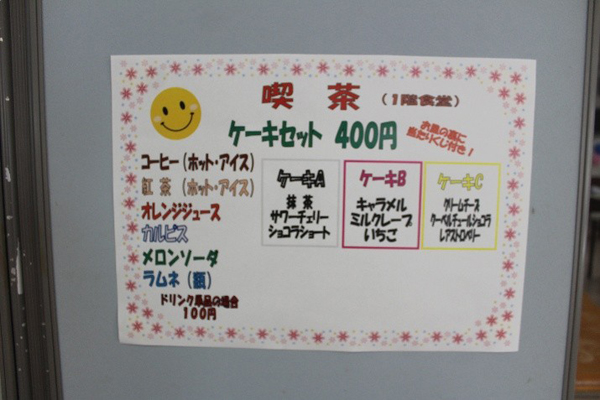 喫 茶 (1階食堂)
ケーキセット 400円
お皿の裏に
当たりくじ付き!
コーヒー(ホット・アイス)
紅茶 (ホット・アイス)
オレンジジュース
カルピス
メロンソーダ
ラムネ(瓶)
ドリンク単品の場合
100円
ケーキA
抹茶
サワーチェリー
ショコラショート
ケーキB
キャラメル
ミルクレープ
いちご
ケーキC
クリームチーズ
クーベルチュールショコラ
レアストロベリー